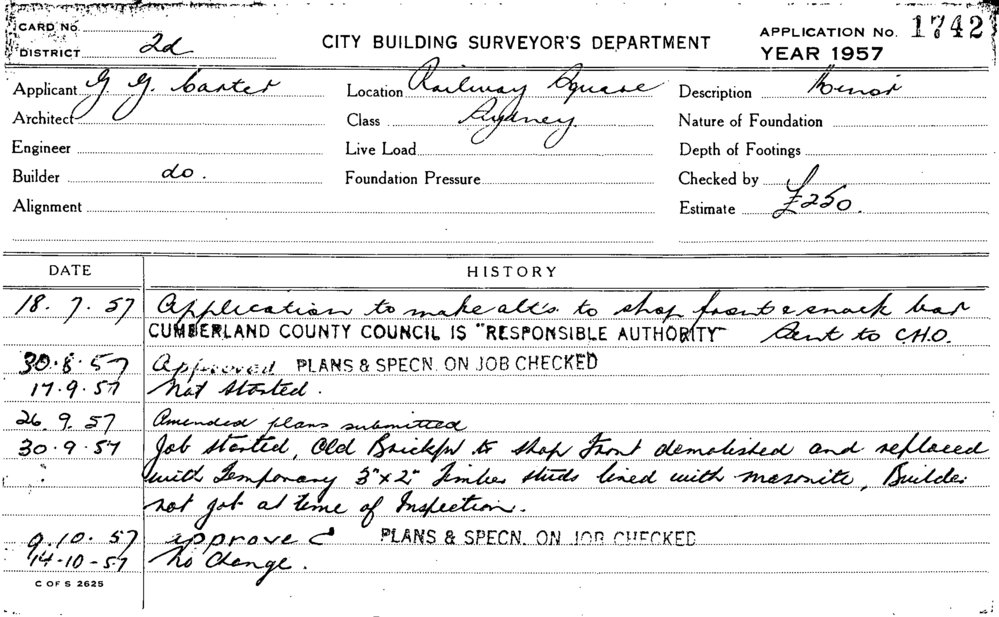 CARD No.
DISTRICT 2d
CITY BUILDING SURVEYOR'S DEPARTMENT
APPLICATION No. 1742
YEAR 1957
Applicant G. G. Carter
Location Railway Square
Description Minor
Architect
Class Sydney.
Nature of Foundation
Engineer
Live Load
Depth of Footings
Builder do.
Foundation Pressure
Checked by
Alignment
Estimate £250.
DATE HISTORY
18. 7. 57 Application to make alt's to shop front & snack bar
CUMBERLAND COUNTY COUNCIL IS "RESPONSIBLE AUTHORITY" Sent to C.H.O.
30.8.57 Approved PLANS & SPECN. ON JOB CHECKED
17.9.57 Not started.
26. 9. 57 Amended plans submitted
30.9.57 Job started, Old to shop Front demolished and replaced
with Temporary 3"x2" Timber studs lined with masonite, Builder
not job at time of Inspection.
9.10.57 approved PLANS & SPECN. ON JOB CHECKED
14-10-57 No Change.
C OF S 2625